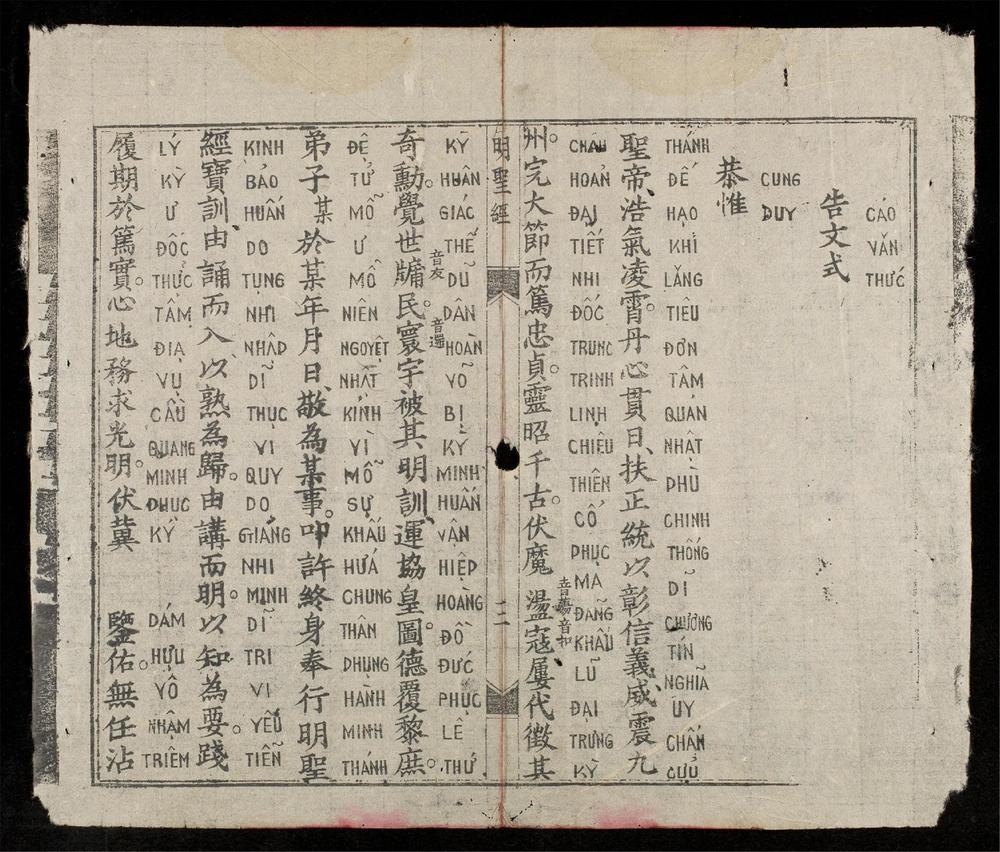 告文式
CÁO VĂN THỨC
恭惟
CUNG DUY
聖帝、浩氣凌霄。丹心貫日、扶正統以彰信義、威震九
THÁNH ĐẾ HẠO KHÍ LĂNG TIÊU ĐƠN TÂM QUÁN NHẬT PHÙ CHINH THỐNG DĨ CHƯƠNG TÍN NGHĨA UY CHẤN CỬU
州。完大節而篤忠貞。靈昭千古。伏魔盪寇屢代徵其
音蕩音扣
CHÂU HOÀN ĐẠI TIẾT NHI ĐỐC TRUNC TRINH LINH CHIÊU THIÊN CỔ PHỤC MA ĐÃNG KHẤU LŨ ĐẠI TRƯNG KỲ
明聖經
二
奇勳。覺世牖民。寰宇被其明訓、運協皇圖。德覆黎庶。
音友
音還
KỲ HUÂN GIÁC THẾ DŨ DÂN HOÀN VÕ BỊ KỲ MINH HUẤN VẬN HIỆP HOÀNG ĐỒ ĐỨC PHỤC LÊ THỨ
弟子某於某年月日、敬為某事。叩許終身奉行明聖
ĐỆ TỬ MỖ Ư MỖ NIÊN NGOYỆT NHẤT KÍNH VÌ MỖ SỰ KHẤU HỨA CHUNG THÂN PHỤNG HÀNH MINH THÁNH
經寶訓、由誦而入以熟為歸。由講而明。以知為要。踐
KINH BẢO HUẤN DO TỤNG NHI NHẬP DĨ THỤC VI QUY DO GIẢNG NHI MINH DĨ TRI VI YẾU TIỄN
履期於篤實。心地務求光明。伏冀 鑒佑。無任沾
LÝ KỲ Ư ĐỐC THỰC TÂM ĐỊA VỤ CẦU QUANG MINH PHỤC KÝ DÁM HỰU VÔ NHẬM TRIÊM